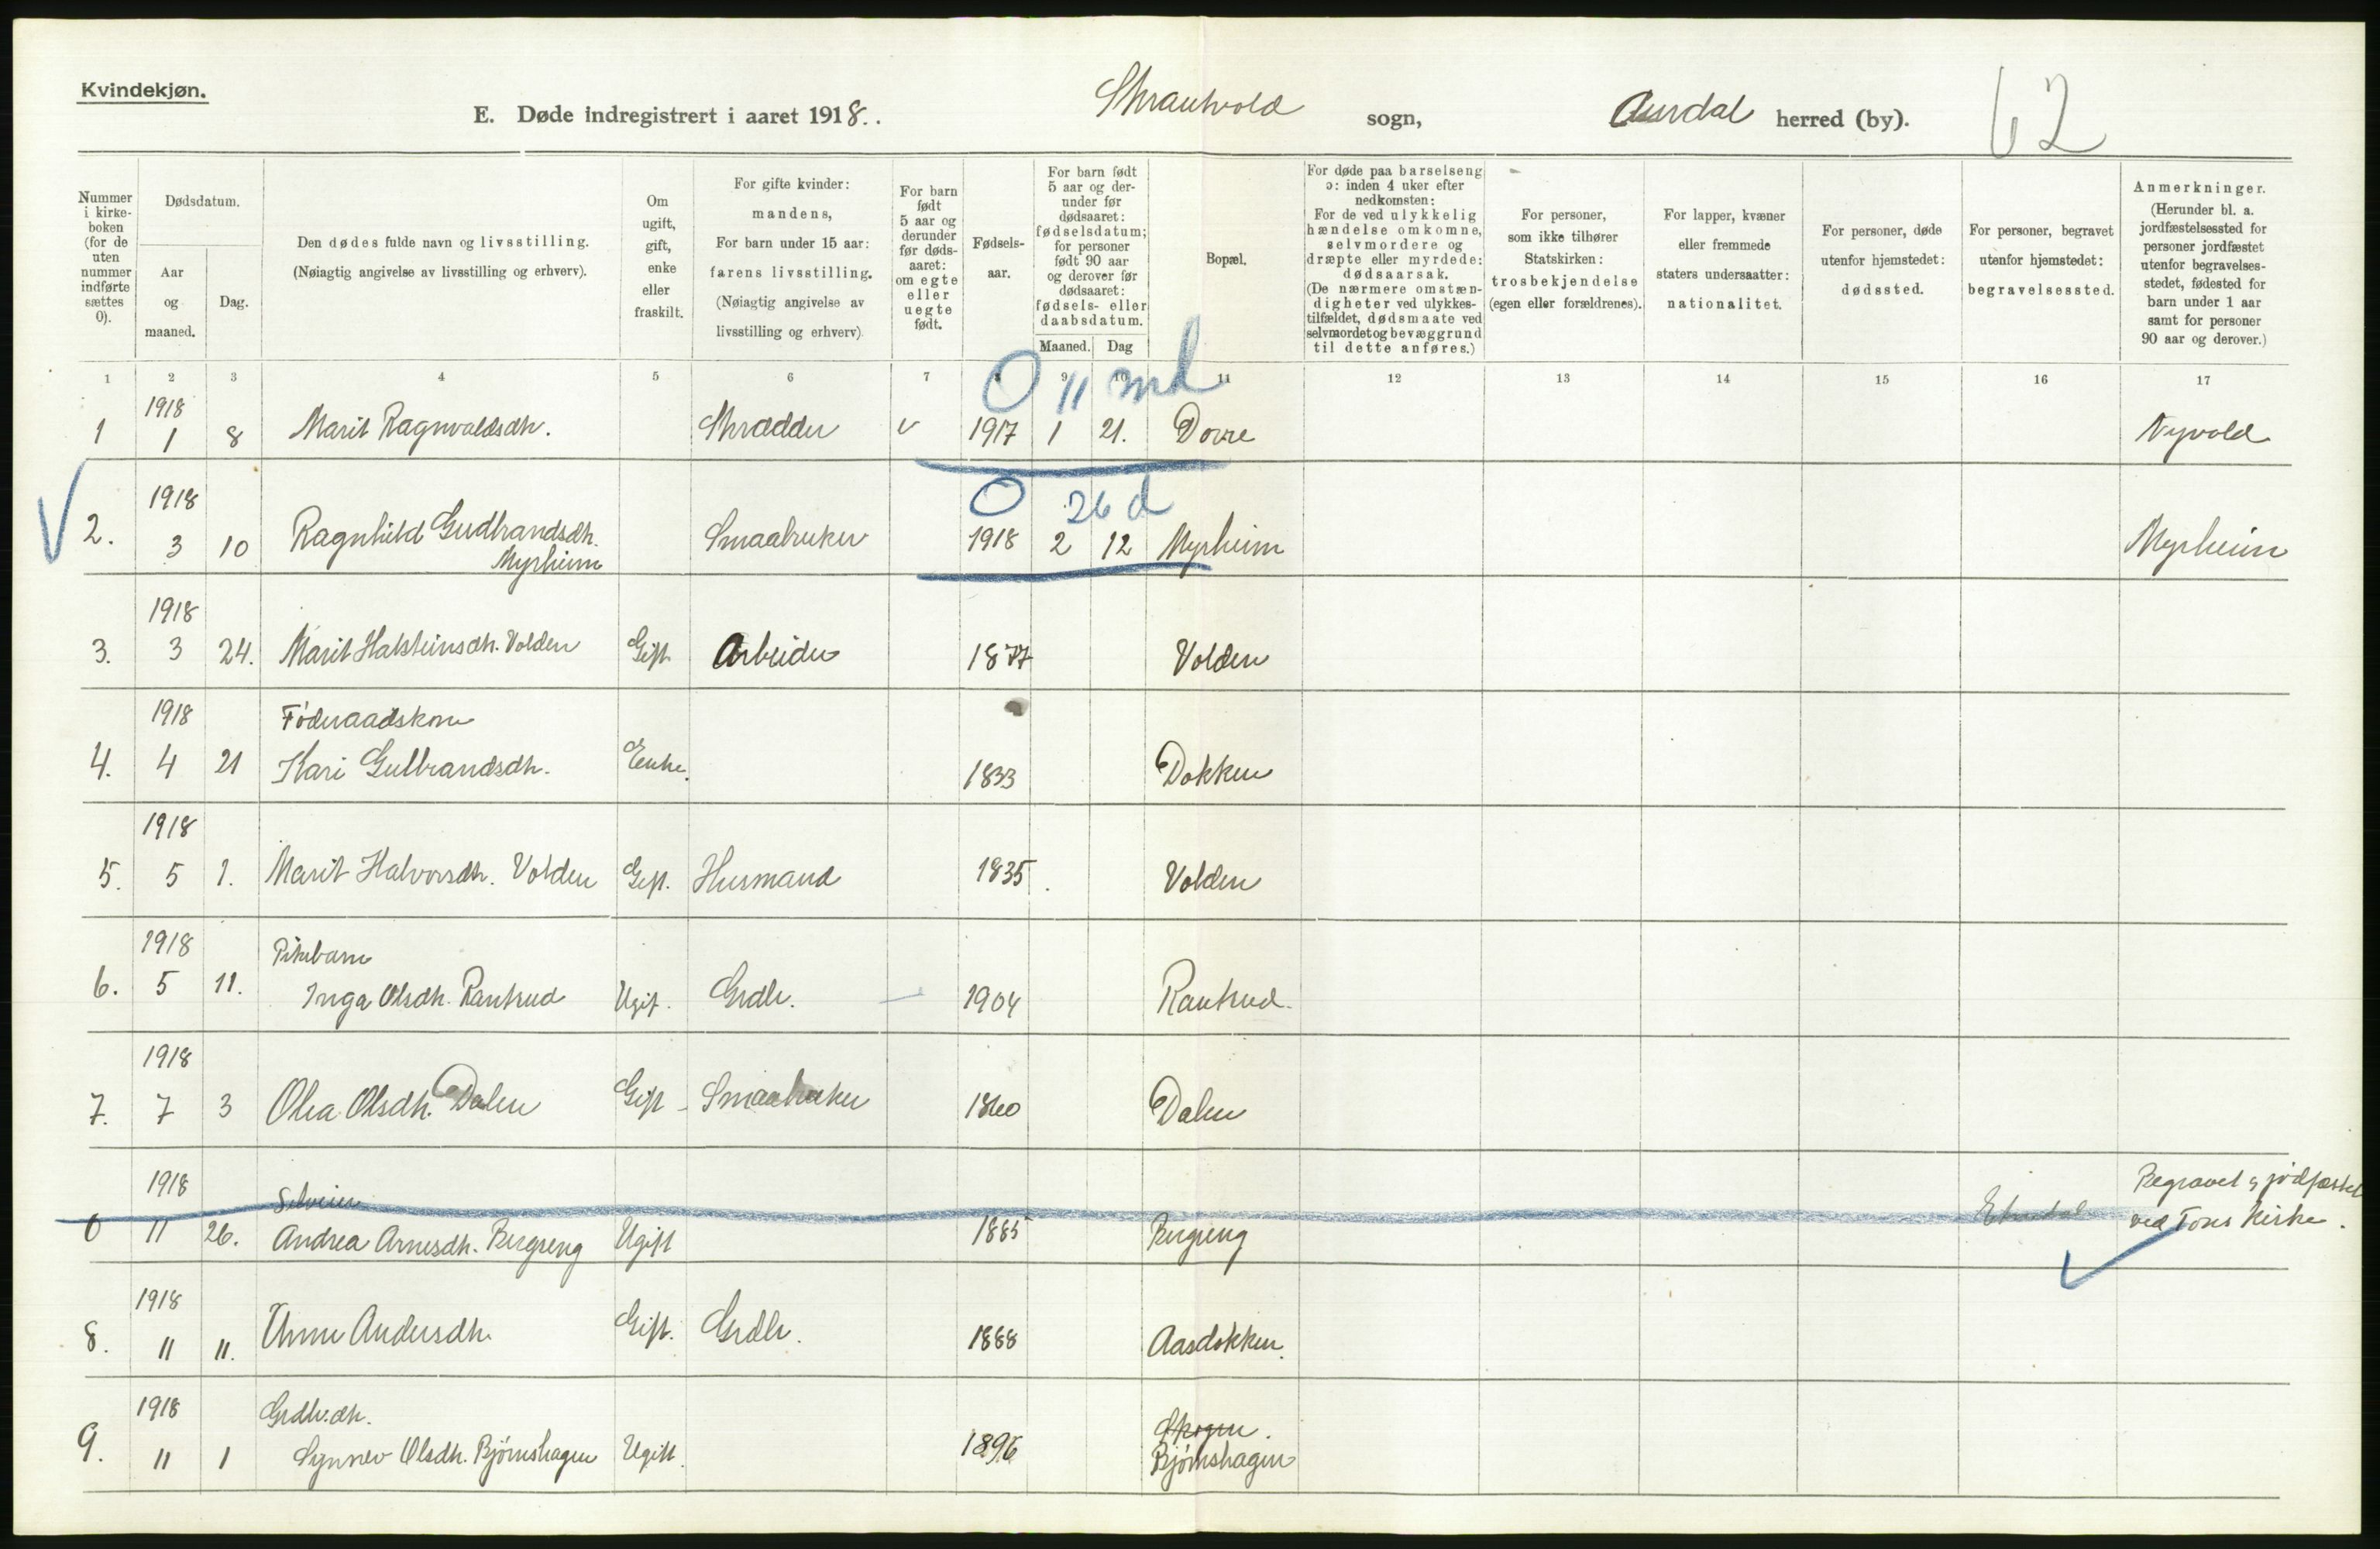 Kvindekjøn.
E. Døde indregistrert i aaret 1918. . Skrautvold sogn, Aurdal herred (by). 62
Nummer i kirkeboken (for de uten nummer indførte sættes 0).
Dødsdatum.
Aar og maaned.
Dag.
Den dødes fulde navn og livsstilling.
(Nøiagtig angivelse av livsstilling og erhverv).
Om ugift, gift, enke eller fraskilt.
For gifte kvinder: mandens,
For barn under 15 aar: farens livsstilling.
(Nøiagtig angivelse av livsstilling og erhverv)
For barn født 5 aar og derunder før dødsaaret: om egte eller uegte født.
Fødselsaar.
For barn født 5 aar og derunder før dødsaaret: fødselsdatum; for personer født 90 aar og derover før dødsaaret: fødsels- eller daabsdatum.
Maaned. Dag
Bopæl.
For døde paa barselseng ɔ: inden 4 uker efter nedkomsten:
For de ved ulykkelig hændelse omkomne, selvmordere og dræpte eller myrdede: dødsaarsak.
(De nærmere omstændigheter ved ulykkestilfældet, dødsmaate ved selvmordet og bevæggrund til dette anføres.)
For personer, som ikke tilhører Statskirken: trosbekjendelse (egen eller forældrenes).
For lapper, kvæner eller fremmede staters undersaatter: nationalitet.
For personer, døde utenfor hjemstedet: dødssted.
For personer, begravet utenfor hjemstedet: begravelsessted.
Anmerkninger.
(Herunder bl. a. jordfæstelsessted for personer jordfæstet utenfor begravelsesstedet, fødested for barn under 1 aar samt for personer 90 aar og derover.)
1 2 3 4 5 6 7 8 9 10 11 12 13 14 15 16 17
0 11 md
1918
1 1 8 Marit Ragnvaldsdtr. Skrædder v 1917 1 21. Dovre Nyvold
1918 0 26 d
2. 3 10 Ragnhild Gudbrandsdtr. Smaabruker 1918 2 12 Myrheim Myrheim
Myrheim
1918
3. 3 24. Marit Halsteinsdtr. Volden Gift Arbeider 1877 Volden
1918 Føderaadskone
4. 4 21 Kari Gulbrandsdtr. Enke. 1833 Dokken
1918
5. 5 1. Marit Halvorsdtr. Volden Gift. Husmand 1835. Volden
1918 Pikebarn
6. 5 11. Inga Olsdtr. Rantrud Ugift. Grdbr. — 1904 Rantrud.
1918
7. 7 3 Olea Olsdtr. Dalen Gift - Smaabruker 1860 Dalen
1918 Selveier Begravet & jordfæstet
0 11 26. Andrea Arnesdtr. Bergseng Ugift 1885 Bergseng Etnedal ved Tons Kirke.
1918
8. 11 11. Unni Andersdtr. Gift. Grdbr. 1888 Aasdokken.
1918 Grdbr.dtr. Skogen.
9. 11 1 Synnev Olsdtr. Bjørnshagen Ugift. 1896 Bjørnshagen